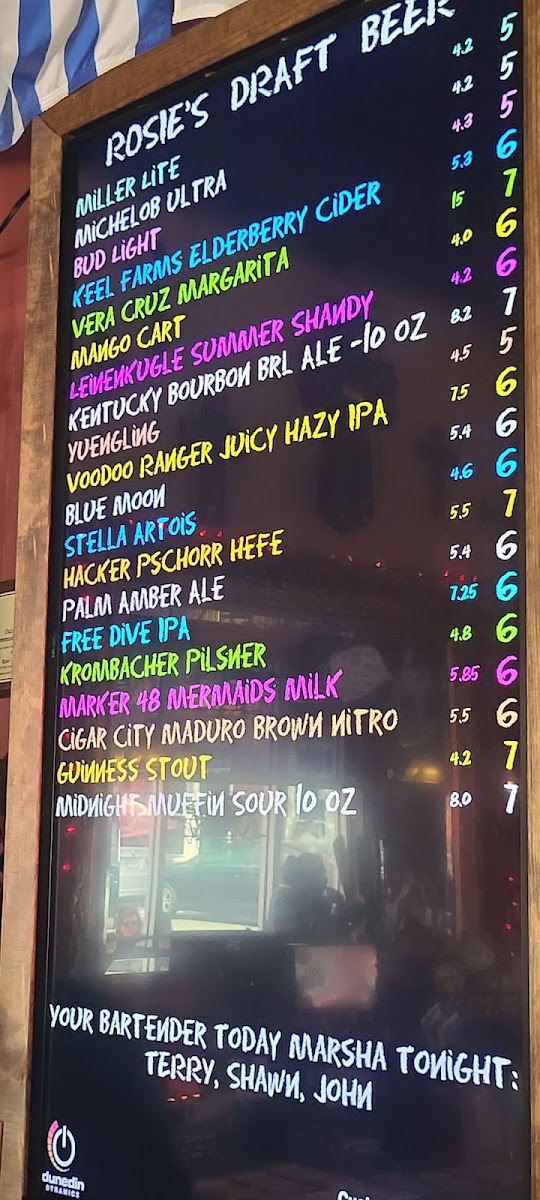 ROSIE'S DRAFT BEER
MILLER LITE 4.2 5
MICHELOB ULTRA 4.2 5
BUD LIGHT 4.3 5
KEEL FARMS ELDERBERRY CIDER 5.3 6
VERA CRUZ MARGARITA 15 7
MANGO CART 4.0 6
LEINENKUGLE SUMMER SHANDY 4.2 6
KENTUCKY BOURBON BRL ALE -10 OZ 8.2 7
YUENGLING 4.5 5
VOODOO RANGER JUICY HAZY IPA 7.5 6
BLUE MOON 5.4 6
STELLA ARTOIS 4.6 6
HACKER PSCHORR HEFE 5.5 7
PALM AMBER ALE 5.4 6
FREE DIVE IPA 7.25 6
KROMBACHER PILSNER 4.8 6
MARKER 48 MERMAIDS MILK 5.85 6
CIGAR CITY MADURO BROWN NITRO 5.5 6
GUINNESS STOUT 4.2 7
MIDNIGHT MUFFIN SOUR 10 OZ 8.0 7
YOUR BARTENDER TODAY MARSHA TONIGHT:
TERRY, SHAWN, JOHN
dunedin
DYNAMICS